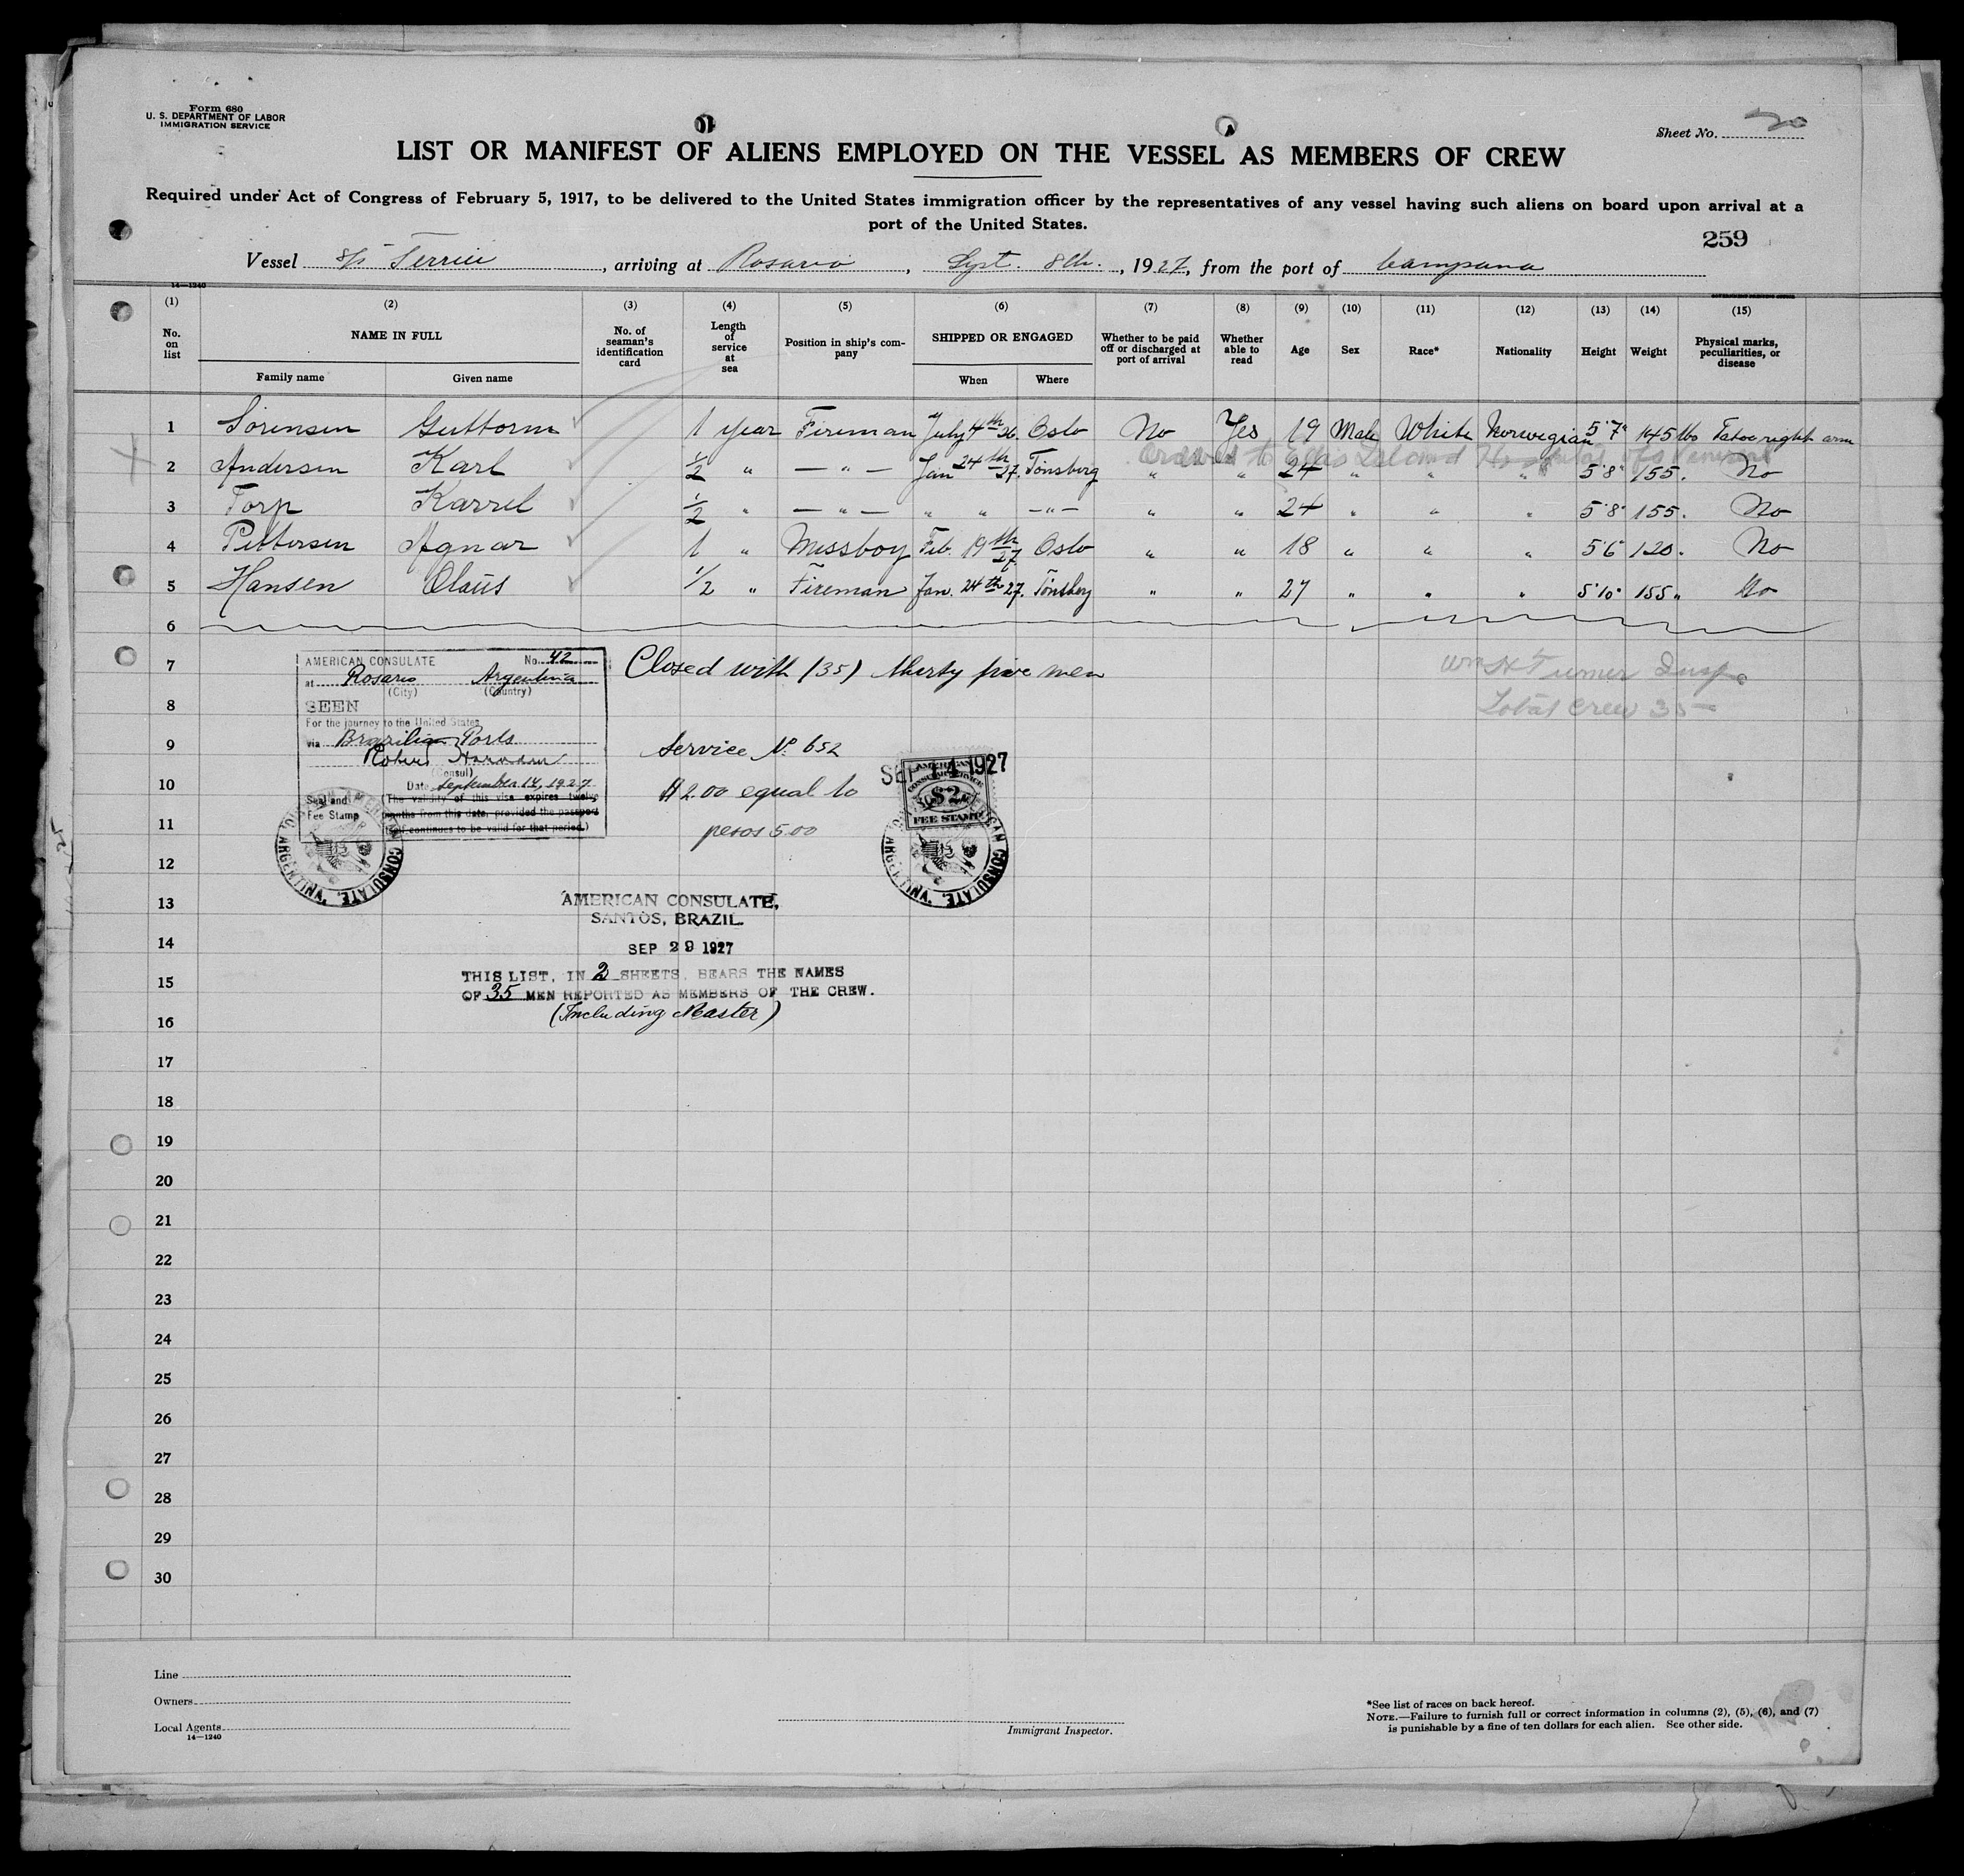 Form 680
U. S. DEPARTMENT OF LABOR
IMMIGRATION SERVICE
Sheet No.
LIST OR MANIFEST OF ALIENS EMPLOYED ON THE VESSEL AS MEMBERS OF CREW
Required under Act of Congress of February 5, 1917, to be delivered to the United States immigration officer by the representatives of any vessel having such aliens on board upon arrival at a
port of the United States.
259
Vessel S/S Terrier, arriving at Rosario, Sept. 8th., 1927, from the port of Campana
14—1240
(1) (2) (3) (4) (5) (6) (7) (8) (9) (10) (11) (12) (13) (14) (15)
No. on list NAME IN FULL No. of seaman's identification card Length of service at sea Position in ship's company SHIPPED OR ENGAGED Whether to be paid off or discharged at port of arrival Whether able to read Age Sex Race* Nationality Height Weight Physical marks, peculiarities, or disease
Family name Given name When Where
1 Sörensen Guttorm 1 year Fireman July 4th 26. Oslo No Yes 19 Male White Norwegian 5'7" 145 lbs Tatoe right arm
Ordered to Ellis Island Hospital
2 Andersen Karl 1/2 " — " — Jan 24th 27. Tönsberg " " 24 " " " 5'8" 155. No
3 Torp Karrel 1/2 " — " — " " — " — " " 24 " " " 5'8" 155. No
4 Pettersen Agnar 1 " Messboy Feb. 19th 27. Oslo " " 18 " " " 5'6" 120. No
5 Hansen Olaüs 1/2 " Fireman Jan. 24th 27. Tönsberg " " 27 " " " 5'10" 155 " No
6
7 Closed with (35) thirty five men
Wm H Turner Insp.
8 Total Crew 35
AMERICAN CONSULATE No. 42
at Rosario Argentina
(City) (Country)
SEEN
For the journey to the United States
via Brazilian Ports
Robert
(Consul)
Date September 14, 1927
Seal and Fee Stamp
(The validity of this visa expires twelve
months from this date, provided the passport
itself continues to be valid for that period.)
AMERICAN CONSULATE, ARGENTINA
9 Service No 652
10 $2.00 equal to
11 pesos 5.00
SEP 14 1927
AMERICAN
CONSULAR SERVICE
$2
FEE STAMP
AMERICAN CONSULATE, ARGENTINA
12
13 AMERICAN CONSULATE,
SANTOS, BRAZIL.
14 SEP 29 1927
15 THIS LIST, IN 2 SHEETS, BEARS THE NAMES
OF 35 MEN REPORTED AS MEMBERS OF THE CREW.
16 (Including Master)
17
18
19
20
21
22
23
24
25
26
27
28
29
30
Line
Owners
Local Agents
14—1240
Immigrant Inspector.
*See list of races on back hereof.
NOTE.—Failure to furnish full or correct information in columns (2), (5), (6), and (7)
is punishable by a fine of ten dollars for each alien. See other side.